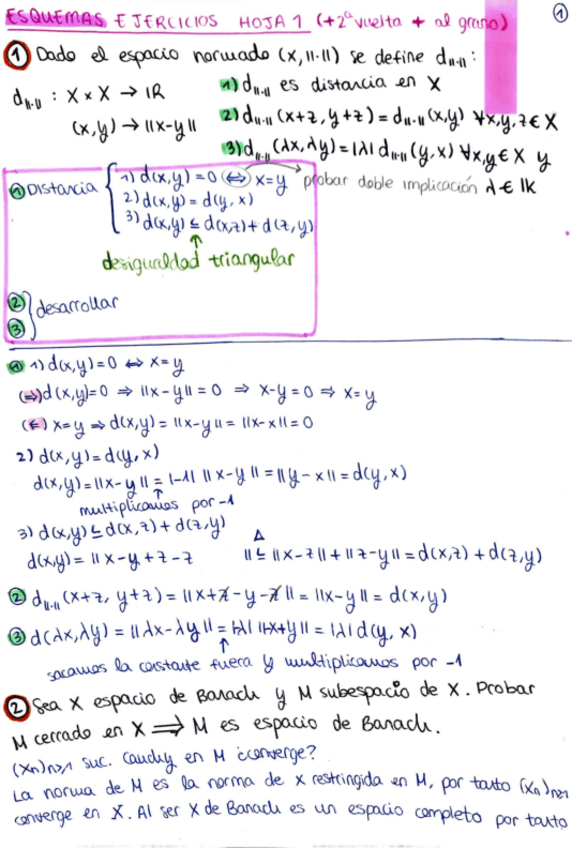 ESQUEMAS EJERCICIOS HOJA 1 (+2ª vuelta + al grano) 1
1 Dado el espacio normado (X, ||·||) se define d||·|| :
d||·|| : X × X → IR
(x,y) → ||x-y||
1) d||·|| es distancia en X
2) d||·|| (x+z, y+z) = d||·|| (x,y) ∀x,y,z ∈ X
3) d||·|| (λx, λy) = |λ| d||·|| (y,x) ∀x,y ∈ X y
λ ∈ IK
1 Distancia { 1) d(x,y) = 0 ⇔ x=y probar doble implicación
2) d(x,y) = d(y,x)
3) d(x,y) ≤ d(x,z) + d(z,y)
↑
desigualdad triangular
2
3 } desarrollar
1 1) d(x,y)=0 ⇔ x=y
(⇒) d(x,y)=0 ⇒ ||x-y|| = 0 ⇒ x-y=0 ⇒ x=y
(⇐) x=y ⇒ d(x,y) = ||x-y|| = ||x-x|| = 0
2) d(x,y) = d(y,x)
d(x,y) = ||x-y|| = |-1| ||x-y|| = ||y-x|| = d(y,x)
↑
multiplicamos por -1
3) d(x,y) ≤ d(x,z) + d(z,y)
Δ
d(x,y) = ||x-y+z-z || ≤ ||x-z|| + ||z-y|| = d(x,z) + d(z,y)
2 d||·|| (x+z, y+z) = ||x+z-y-z|| = ||x-y|| = d(x,y)
3 d(λx, λy) = ||λx-λy|| = |λ| ||-x+y|| = |λ| d(y,x)
↑
sacamos la constante fuera y multiplicamos por -1
2 Sea X espacio de Banach y M subespacio de X. Probar
M cerrado en X ⟹ M es espacio de Banach.
(Xn)n≥1 suc. Cauchy en M ¿converge?
La norma de M es la norma de X restringida en M, por tanto (Xn)n≥1
converge en X. Al ser X de Banach es un espacio completo por tanto